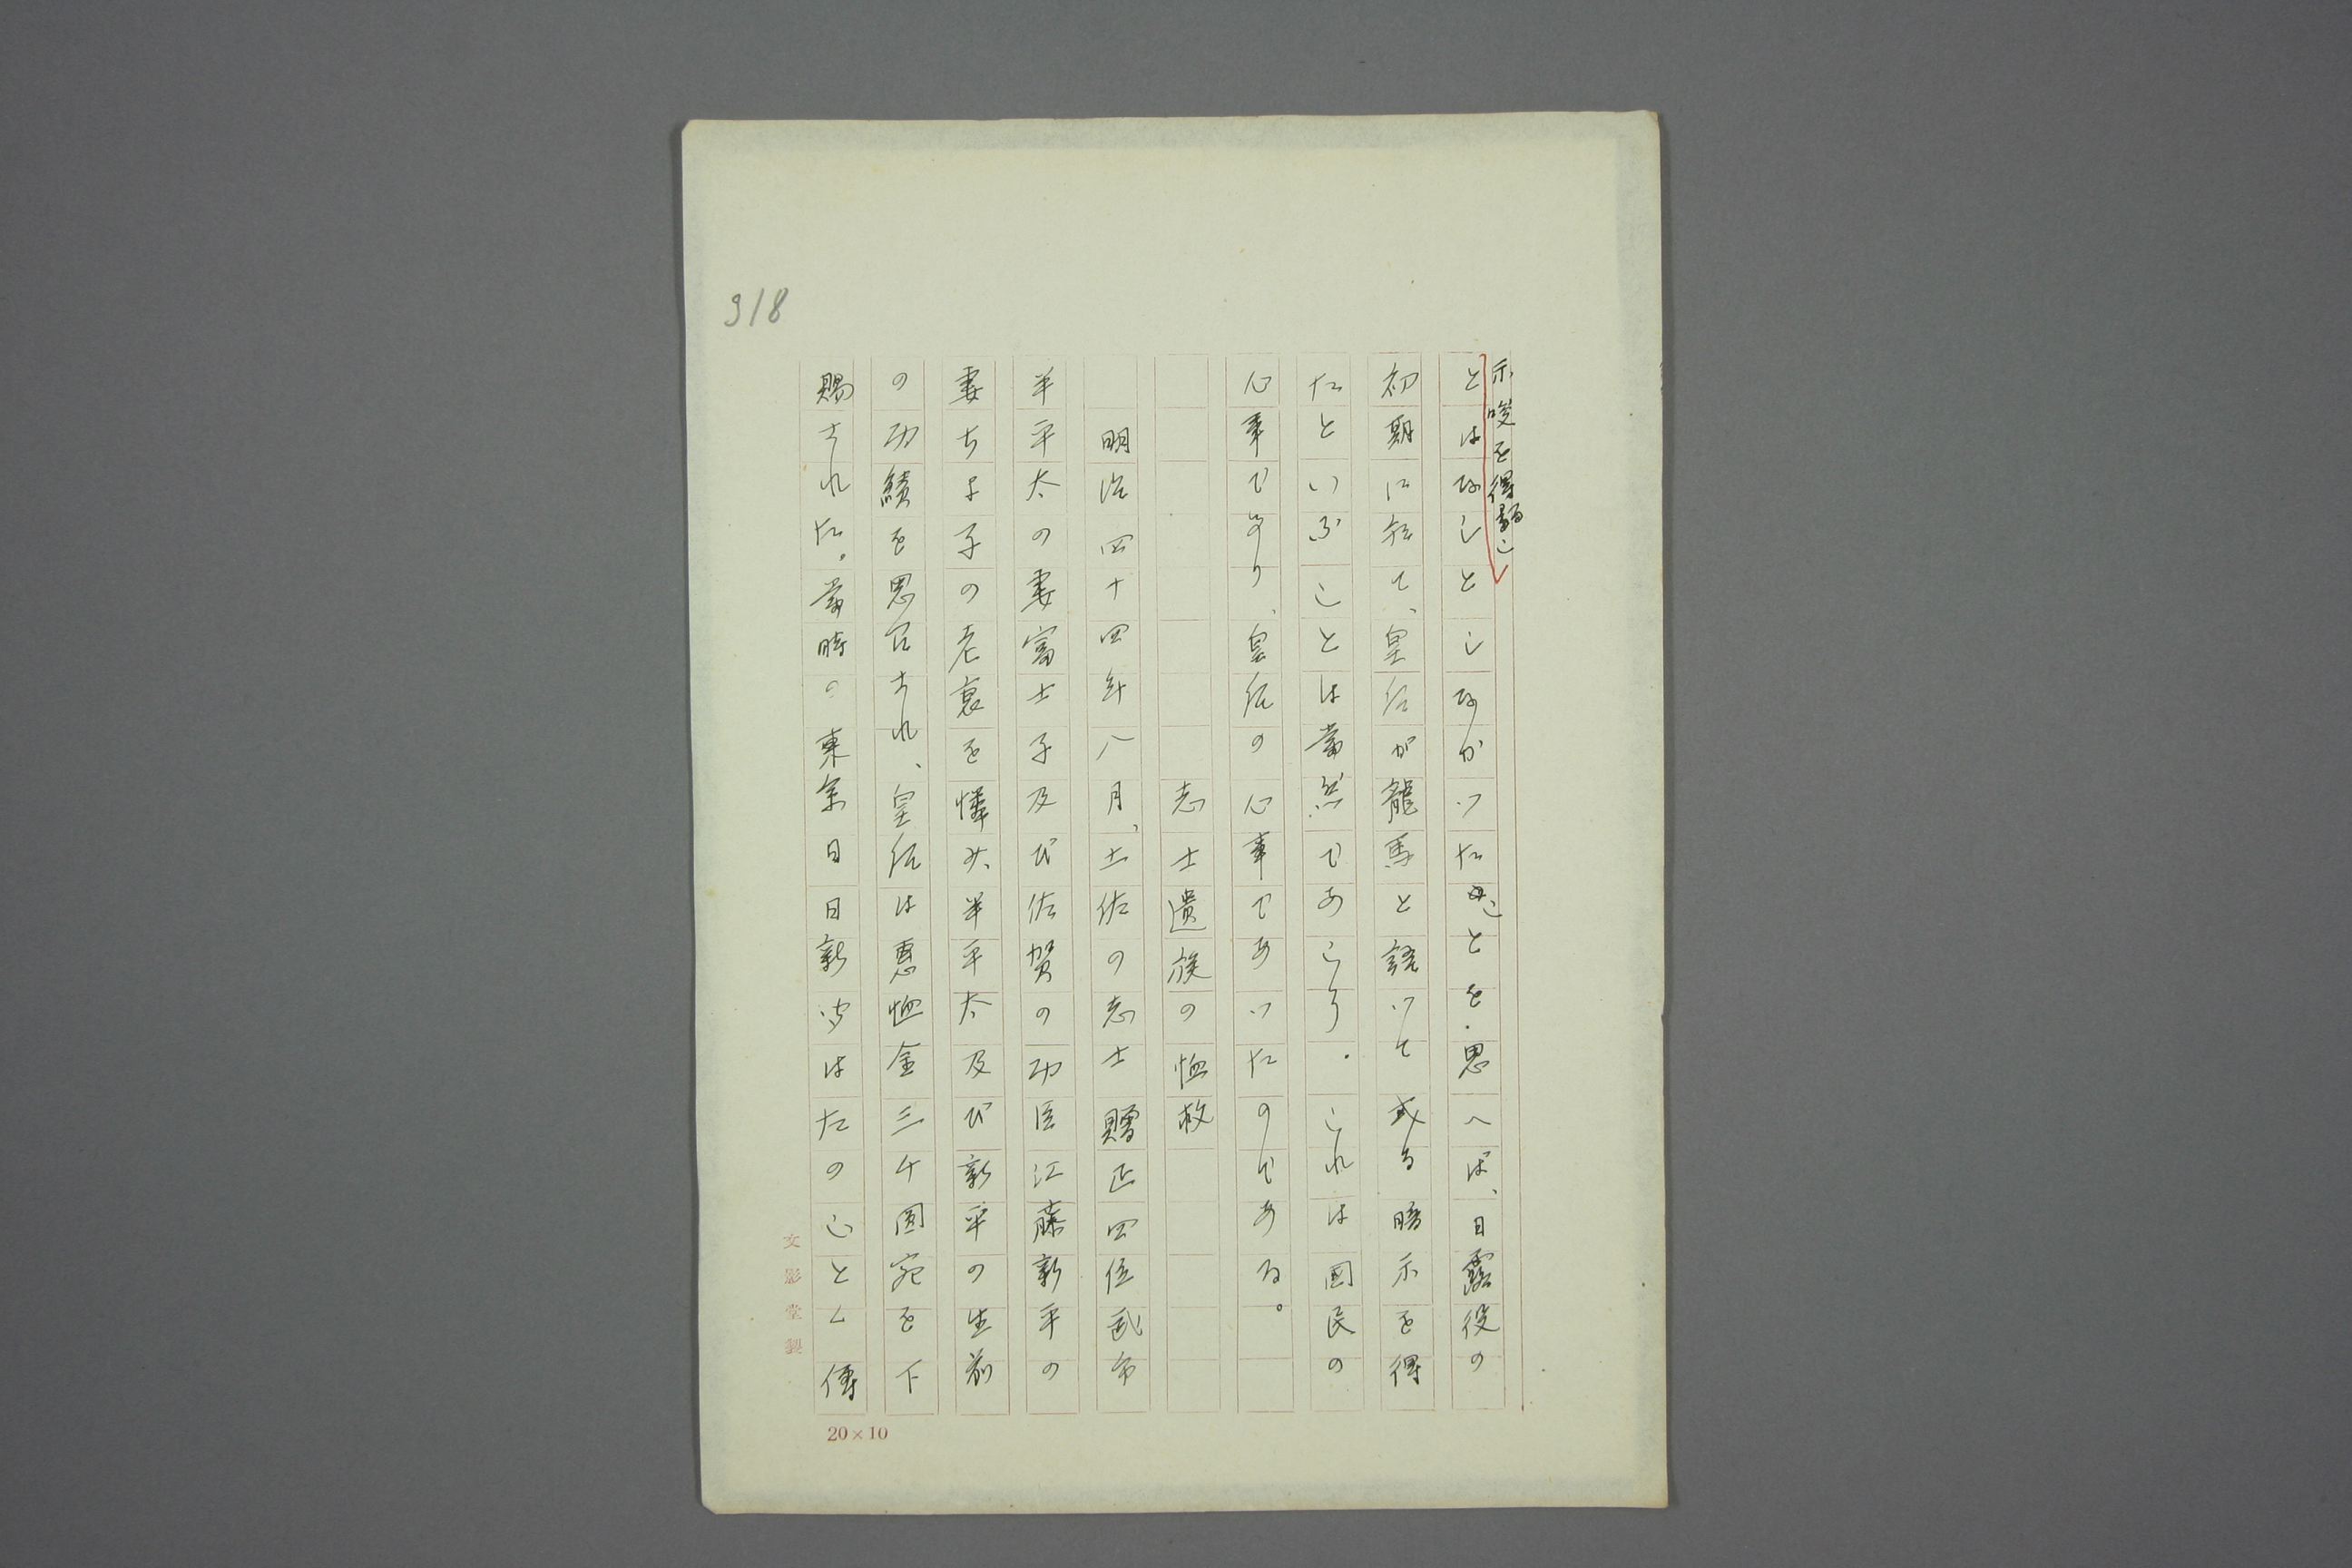 318
示唆を得るこ
とはなしとしなかつたことを思へば、日露役の
初期に於て、皇后が龍馬と語つて或る暗示を得
たといふことは當然であらう。これは国民の
心事であり、皇后の心事であつたのである。
志士遺族の恤救
明治四十四年八月、土佐の志士贈正四位武市
半平太の妻富士子及び佐賀の功臣江藤新平の
妻ちよ子の老衰を憐み、半平太及び新平の生前
の功績を思召され、皇后は恵恤金三千圓宛を下
賜された。當時の東京日日新聞はたのごとく傳
文影堂製
20×10